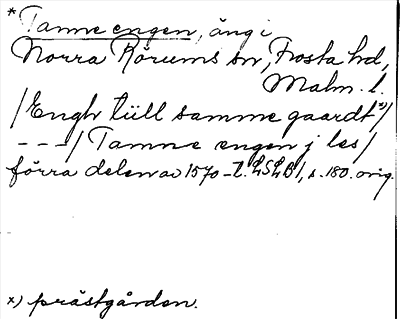 * Tamme engen, äng i
Norra Rörums sn, Frosta hd,
Malm. l.
/Engh tiill samme gaardt x)/
---/ Tamme engen j les/
förra delen av 1570-t. LSLB I, s. 180. orig.
x) prästgården.